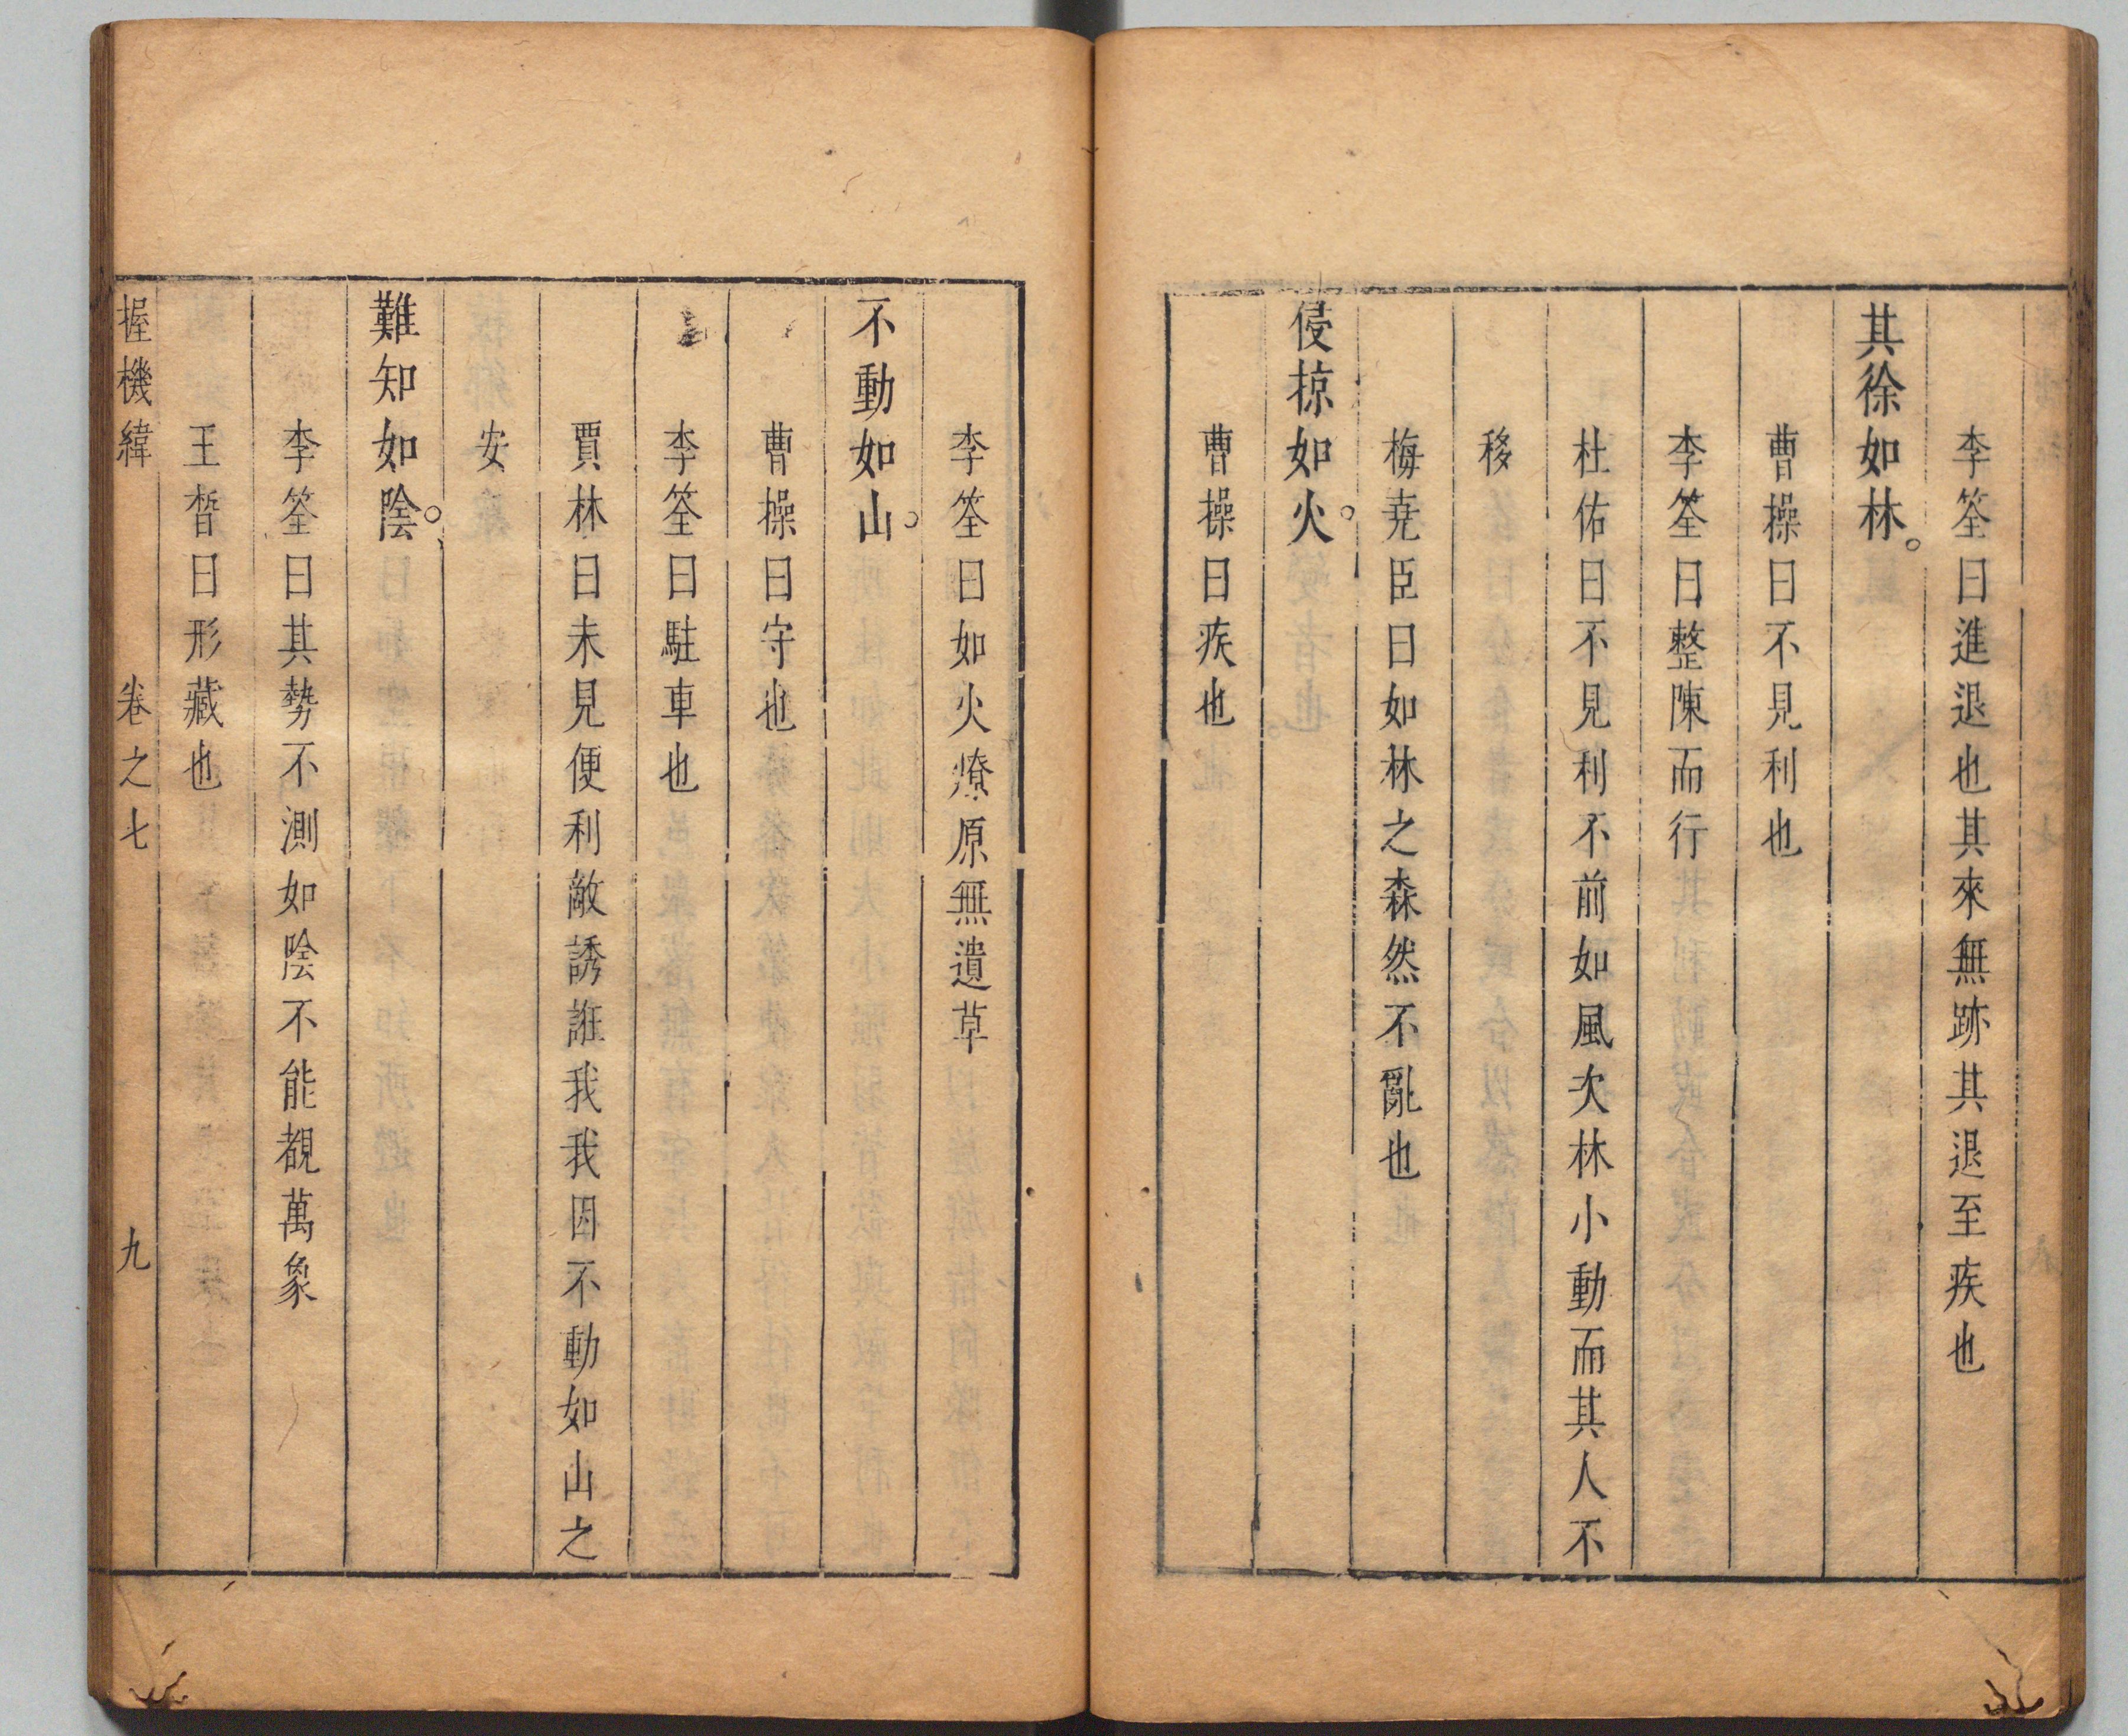 李筌曰進退也其來無跡其退至疾也
其徐如林。
曹操曰不見利也
李筌曰整陳而行
杜佑曰不見利不前如風吹林小動而其人不
移
梅堯臣曰如林之森然不亂也
侵掠如火。
曹操曰疾也
李筌曰如火燎原無遺草
不動如山。
曹操曰守也
李筌曰駐車也
賈林曰未見便利敵誘誑我我因不動如山之
安
難知如陰。
李筌曰其勢不測如陰不能覩萬象
王晳曰形藏也
握機緯 卷之七 九